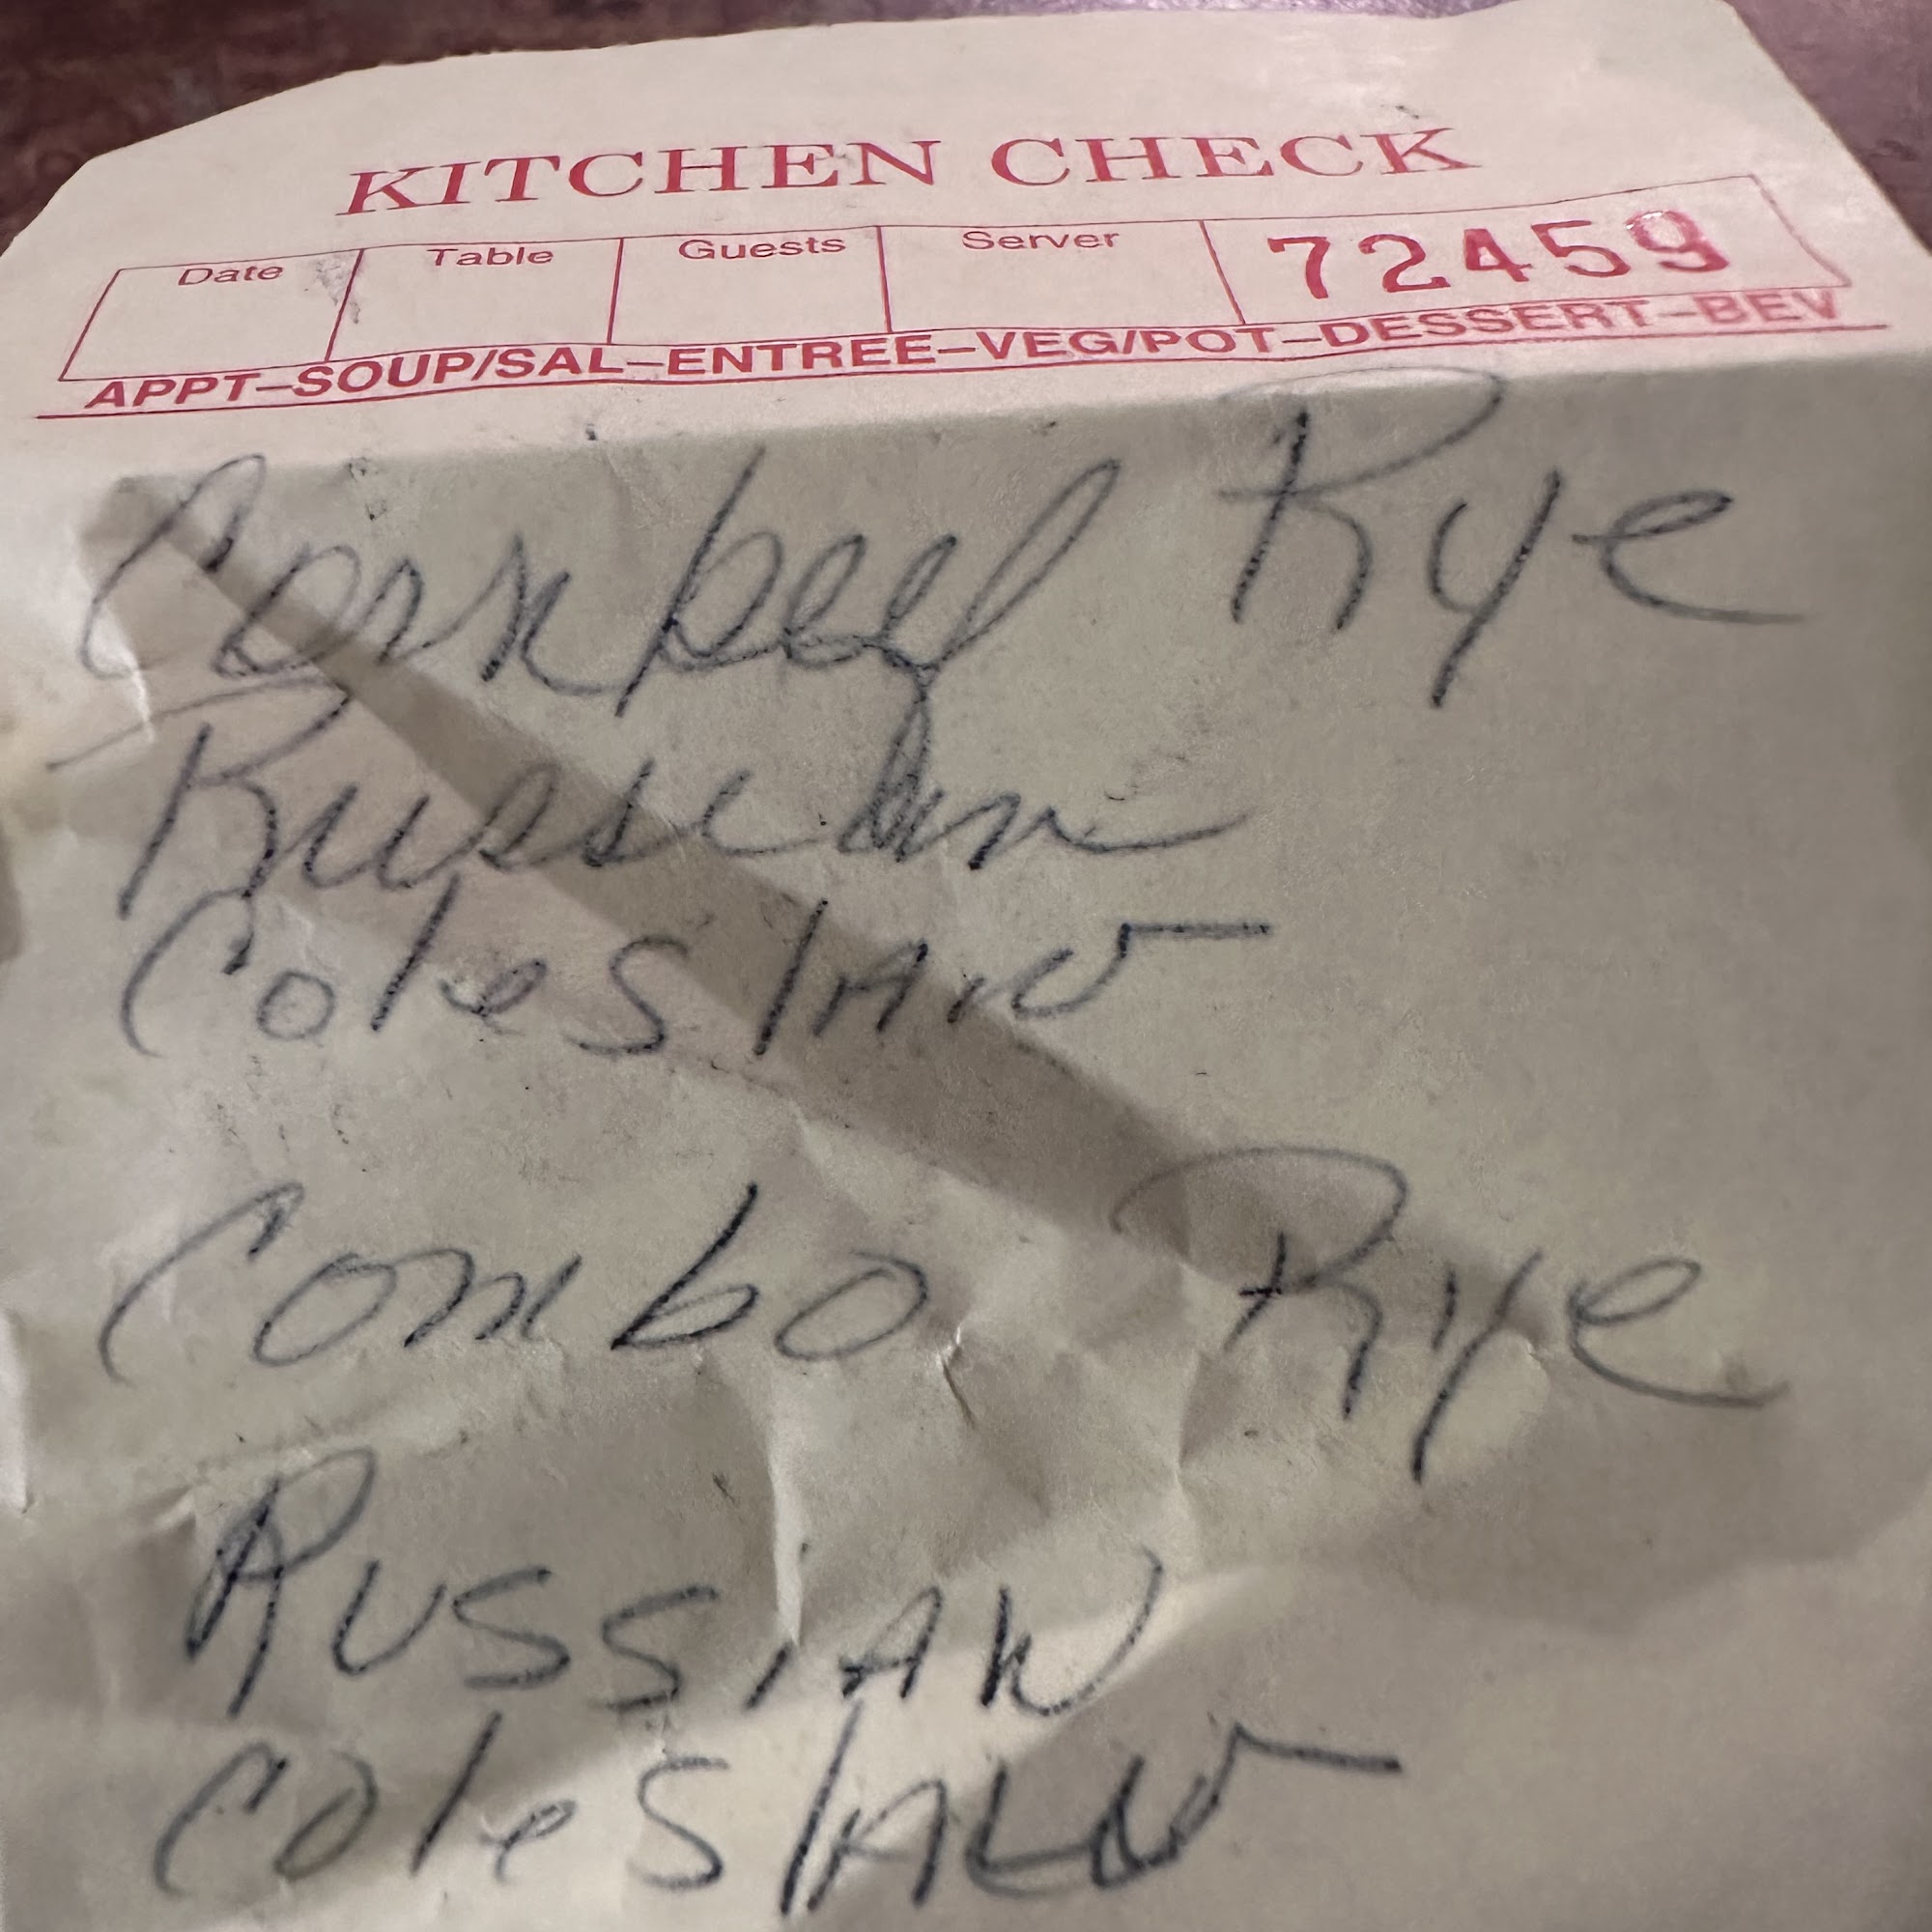 KITCHEN CHECK
Date Table Guests Server 72459
APPT-SOUP/SAL-ENTREE-VEG/POT-DESSERT-BEV
Cornbeef Rye
Russian
Coleslaw
Combo Rye
Russian
Coleslaw